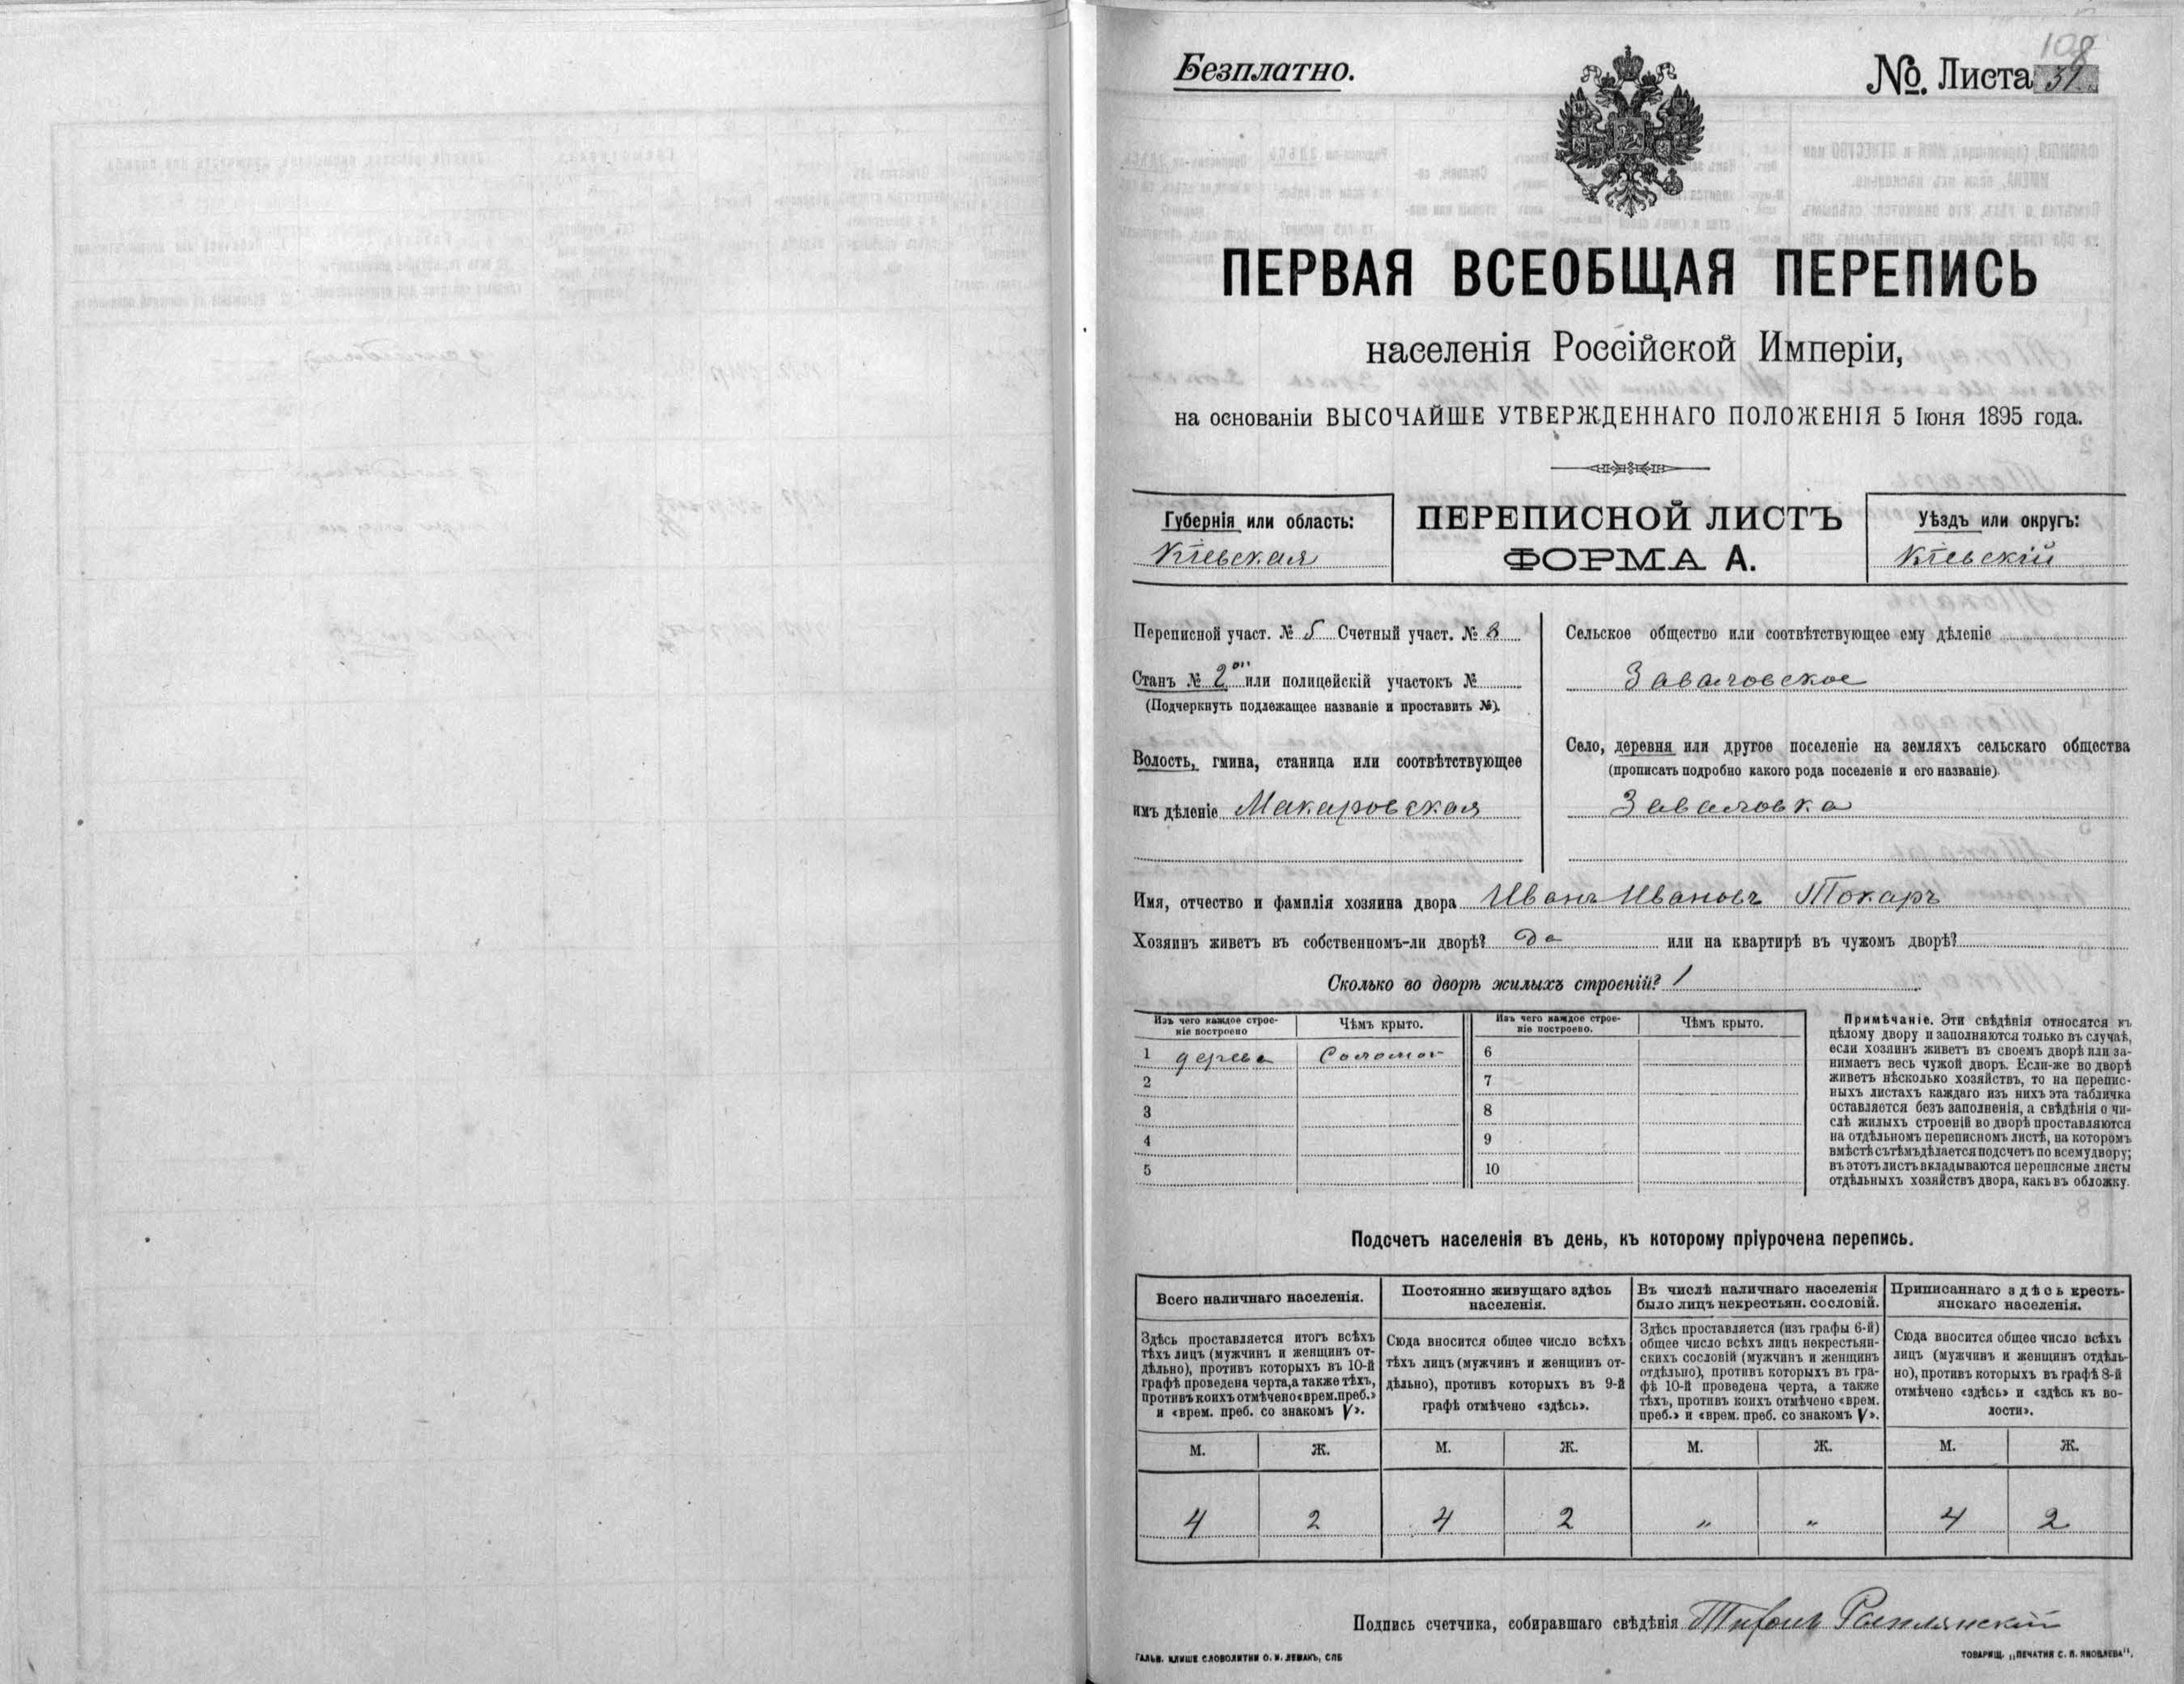 Безплатно.
№. Листа 31
108
ПЕРВАЯ ВСЕОБЩАЯ ПЕРЕПИСЬ
населенія Россійской Имперіи,
на основаніи ВЫСОЧАЙШЕ УТВЕРЖДЕННАГО ПОЛОЖЕНІЯ 5 Іюня 1895 года.
Губернія или область:
Кіевская
ПЕРЕПИСНОЙ ЛИСТЪ
ФОРМА А.
Уѣздъ или округъ:
Кіевскій
Переписной участ. № 5 Счетный участ. № 8
Станъ № 2ой или полицейскій участокъ №
(Подчеркнуть подлежащее названіе и проставить №).
Волость, гмина, станица или соотвѣтствующее
имъ дѣленіе Макаровская
Сельское общество или соотвѣтствующее ему дѣленіе
Заваловское
Село, деревня или другое поселеніе на земляхъ сельскаго общества
(прописать подробно какого рода поселеніе и его названіе).
Заваловка
Имя, отчество и фамилія хозяина двора Иванъ Ивановъ Токаръ
Хозяинъ живетъ въ собственномъ-ли дворѣ? да или на квартирѣ въ чужомъ дворѣ?
Сколько во дворѣ жилыхъ строеній? 1
Изъ чего каждое строе-
ніе построено
Чѣмъ крыто.
Изъ чего каждое строе-
ніе построено.
Чѣмъ крыто.
1 дерева Соломой
2
3
4
5
6
7
8
9
10
Примѣчаніе. Эти свѣдѣнія относятся къ
цѣлому двору и заполняются только въ случаѣ,
если хозяинъ живетъ въ своемъ дворѣ или за-
нимаетъ весь чужой дворъ. Если-же во дворѣ
живетъ нѣсколько хозяйствъ, то на перепис-
ныхъ листахъ каждаго изъ нихъ эта табличка
оставляется безъ заполненія, а свѣдѣнія о чи-
слѣ жилыхъ строеній во дворѣ проставляются
на отдѣльномъ переписномъ листѣ, на которомъ
вмѣстѣ съ тѣмъ дѣлается подсчетъ по всему двору;
въ этотъ листъ вкладываются переписные листы
отдѣльныхъ хозяйствъ двора, какъ въ обложку.
Подсчетъ населенія въ день, къ которому пріурочена перепись.
Всего наличнаго населенія.
Постоянно живущаго здѣсь
населенія.
Въ числѣ наличнаго населенія
было лицъ некрестьян. сословій.
Приписаннаго здѣсь кресть-
янскаго населенія.
Здѣсь проставляется итогъ всѣхъ
тѣхъ лицъ (мужчинъ и женщинъ от-
дѣльно), противъ которыхъ въ 10-й
графѣ проведена черта, а также тѣхъ,
противъ коихъ отмѣчено «врем. преб.»
и «врем. преб. со знакомъ V».
Сюда вносится общее число всѣхъ
тѣхъ лицъ (мужчинъ и женщинъ от-
дѣльно), противъ которыхъ въ 9-й
графѣ отмѣчено «здѣсь».
Здѣсь проставляется (изъ графы 6-й)
общее число всѣхъ лицъ некрестьян-
скихъ сословій (мужчинъ и женщинъ
отдѣльно), противъ которыхъ въ гра-
фѣ 10-й проведена черта, а также
тѣхъ, противъ коихъ отмѣчено «врем.
преб.» и «врем. преб. со знакомъ V».
Сюда вносится общее число всѣхъ
лицъ (мужчинъ и женщинъ отдѣль-
но), противъ которыхъ въ графѣ 8-й
отмѣчено «здѣсь» и «здѣсь къ во-
лости».
М. Ж. М. Ж. М. Ж. М. Ж.
4 2 4 2 " " 4 2
Подпись счетчика, собиравшаго свѣдѣнія
ГАЛЬВ. КЛИШЕ СЛОВОЛИТНИ О. И. ЛЕМАНЪ, СПБ
ТОВАРИЩ. „ПЕЧАТНЯ С. П. ЯКОВЛЕВА".